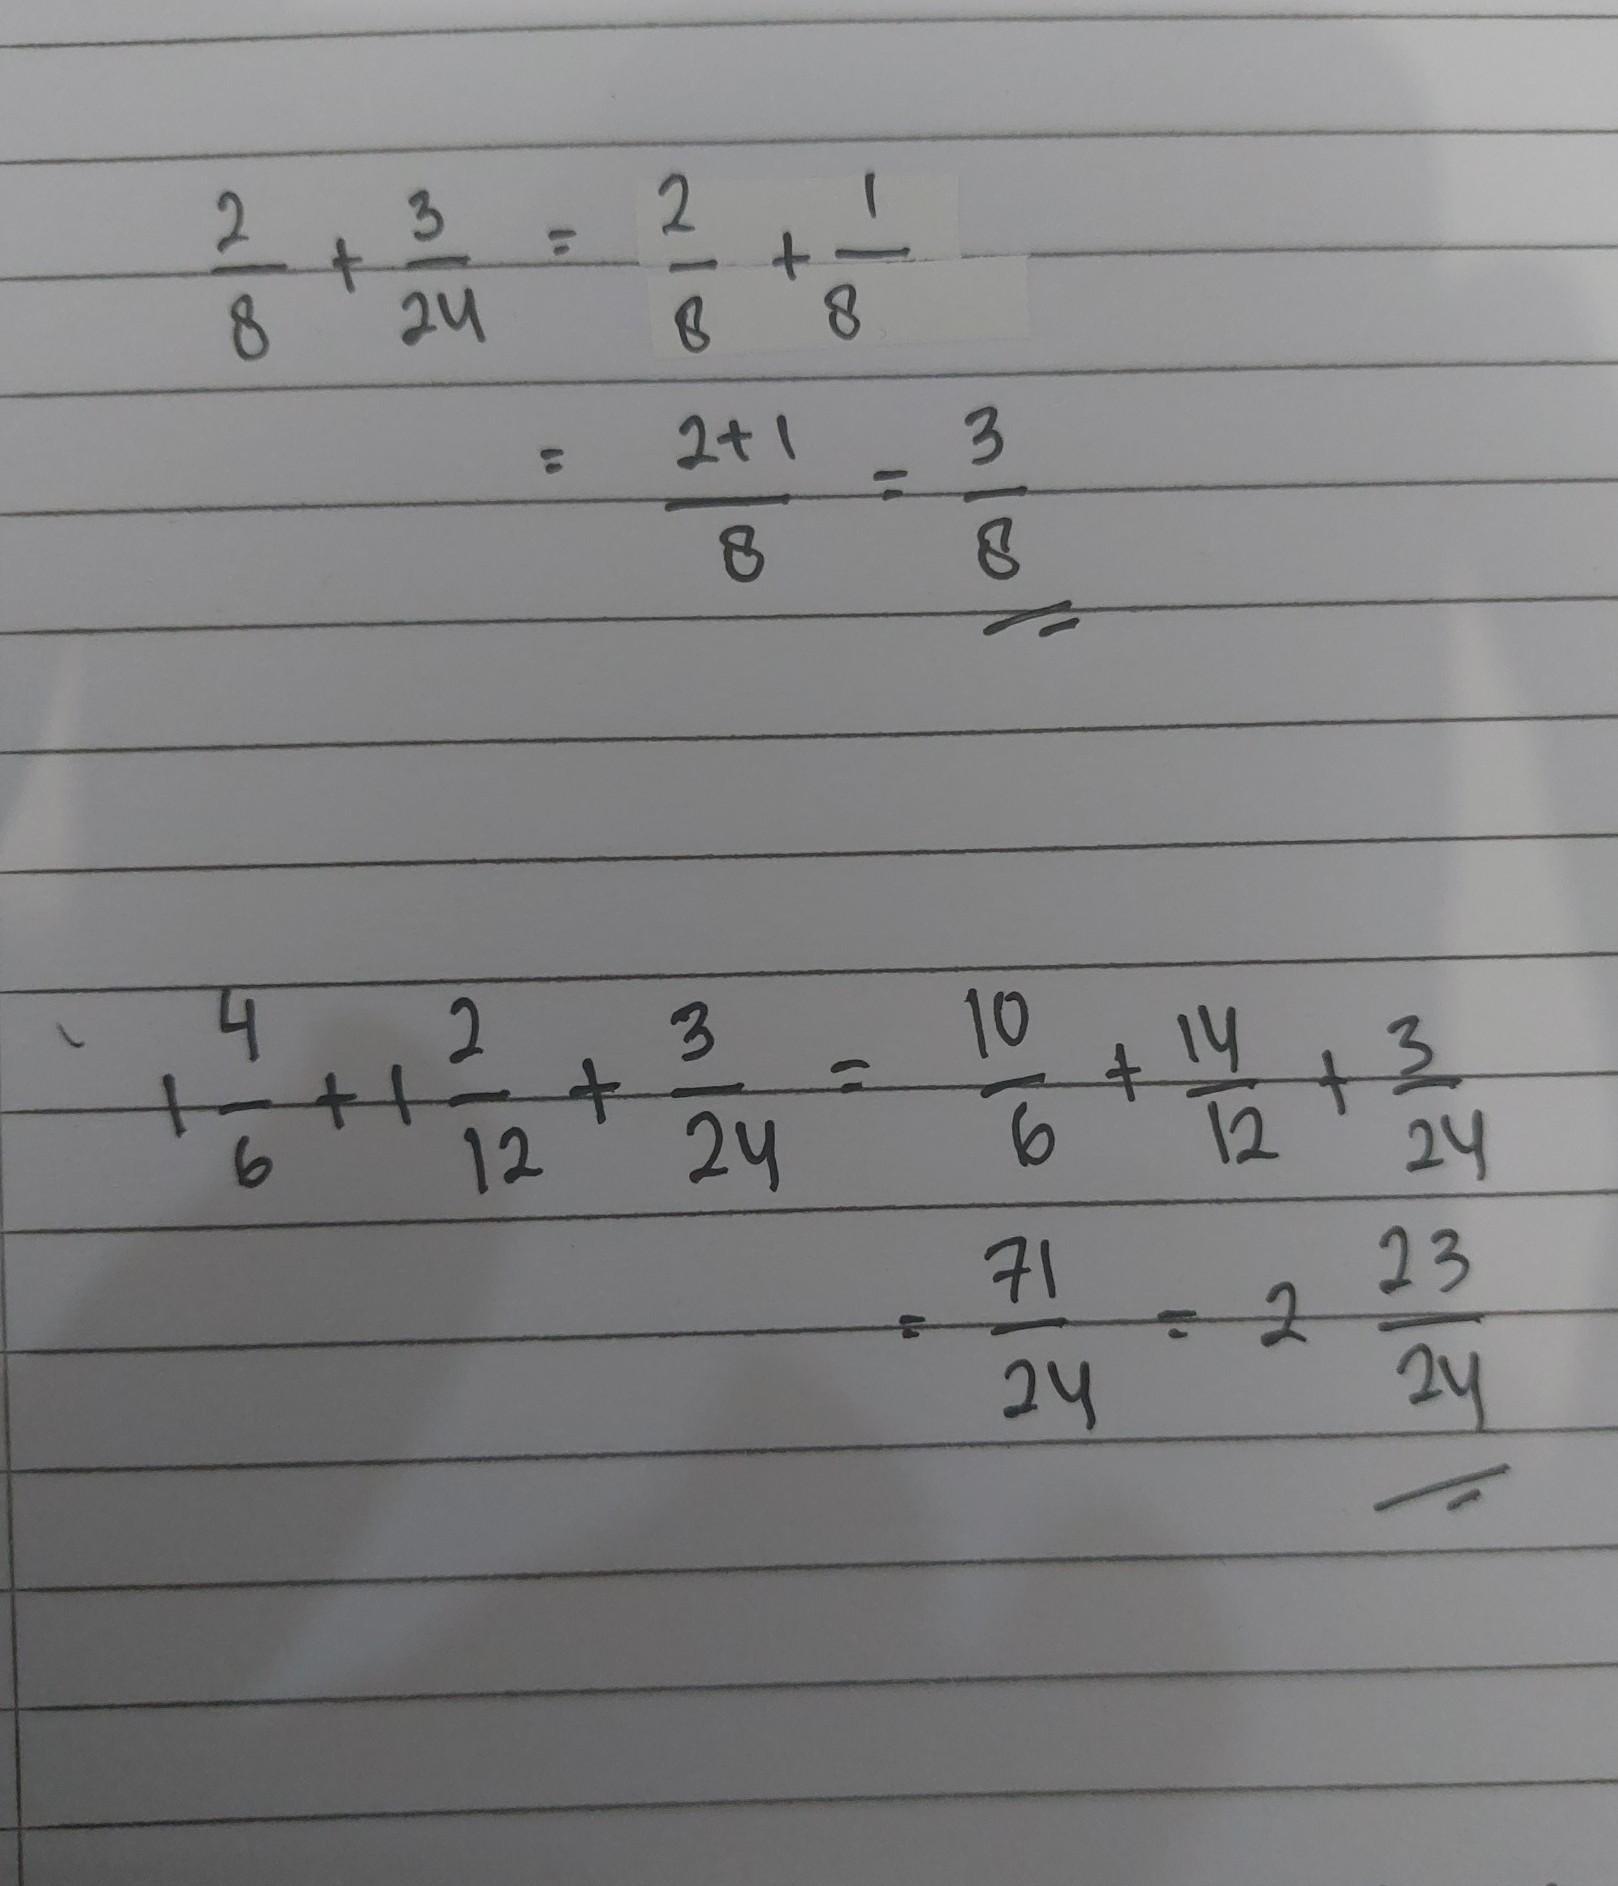 2/8 + 3/24 = 2/8 + 1/8
= 2+1/8 = 3/8
1 4/6 + 1 2/12 + 3/24 = 10/6 + 14/12 + 3/24
= 71/24 = 2 23/24